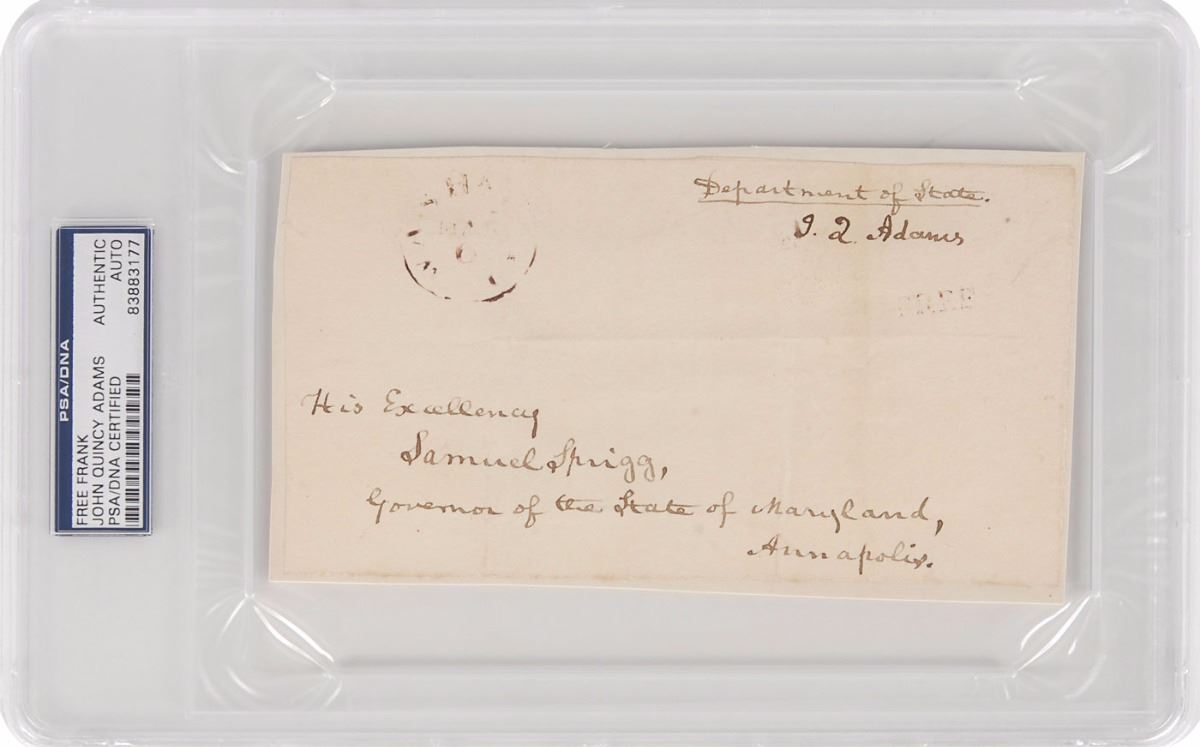 PSA/DNA
FREE FRANK
JOHN QUINCY ADAMS
PSA/DNA CERTIFIED
AUTHENTIC
AUTO
83883177
Department of State.
J. Q. Adams
His Excellency
Samuel Sprigg,
Governor of the State of Maryland,
Annapolis.